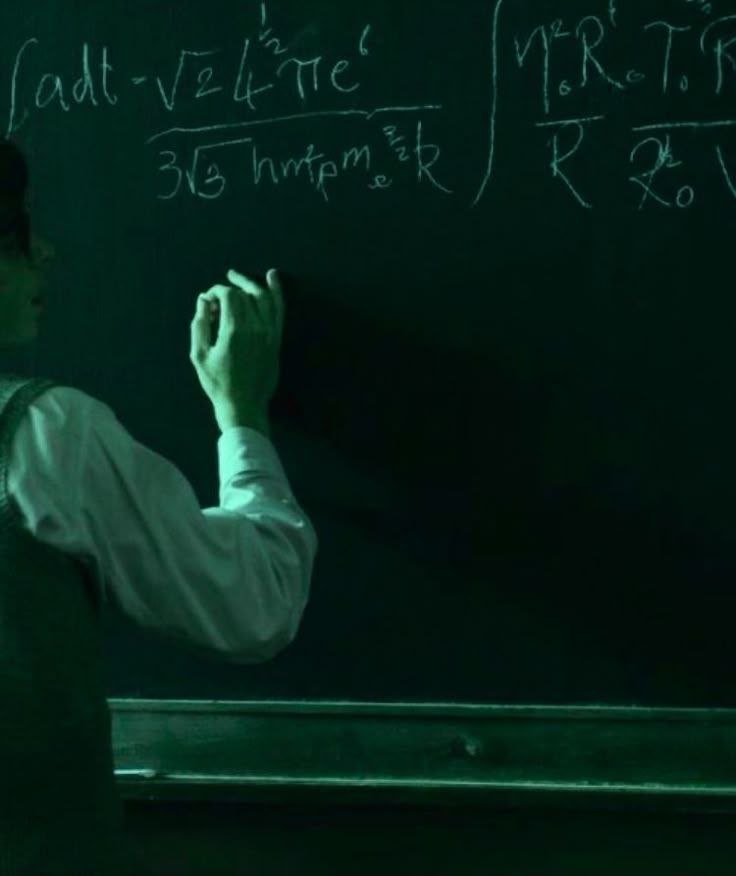 ∫adt = √2 4^½ π e⁶ / 3√3 h m²ₚ mₑ^(3/2) k ∫ η₀² R₀⁶ T₀ R / R R₀